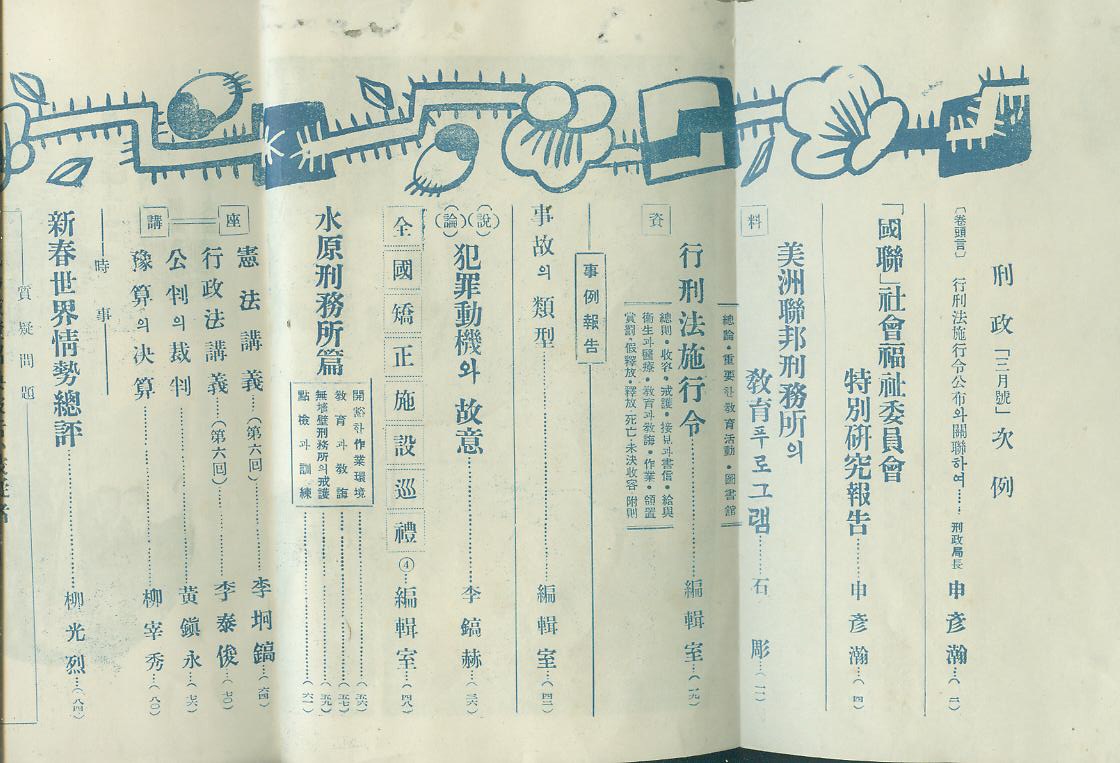 刑政「三月號」次例
〔卷頭言〕 行刑法施行令公布와 關聯하여…… 刑政局長 申彦瀚…(二)
「國聯」社會福祉委員會
特別硏究報告……申彦瀚…(四)
美洲聯邦刑務所의
敎育푸로그램……石彫…(一一)
總論·重要한 敎育活動·圖書館
資料
行刑法施行令……編輯室…(一九)
總則·收容·戒護·接見과 書信·給與
衞生과 醫療·敎育과 敎誨·作業·領置
賞罰·假釋放·釋放·死亡·未決收容·附則
事例報告
事故의 類型……編輯室…(四二)
(論)(說)
犯罪動機와 故意……李鎬赫…(三六)
全國矯正施設巡禮④ 編輯室…(四八)
水原刑務所篇
開豁한 作業環境……(五六)
敎育과 敎誨……(五七)
無墻壁刑務所의 戒護……(五九)
點檢과 訓練……(六一)
講座
憲法講義…(第六回)……李坰鎬…(六四)
行政法講義…(第六回)……李泰俊…(七〇)
公判의 裁判……黃鎭永…(七六)
豫算의 決算……柳宰秀…(八〇)
時事
新春世界情勢總評……柳光烈…(八四)
質疑問題